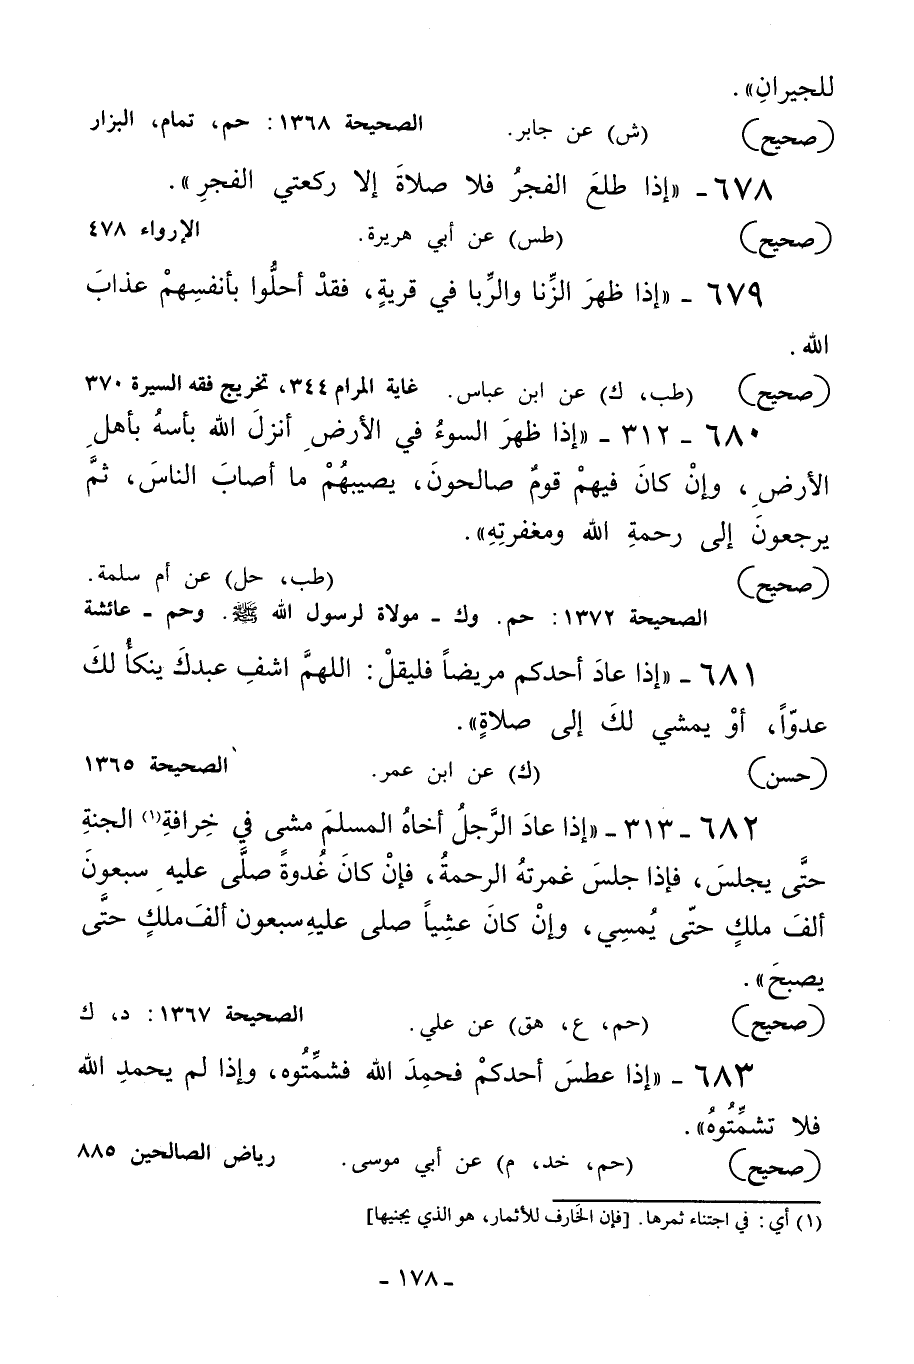 للجيرانِ».
(صحيح) (ش) عن جابر. الصحيحة ١٣٦٨: حم، تمام، البزار
٦٧٨ ـ «إذا طلعَ الفجرُ فلا صلاةَ إلا ركعتي الفجرِ».
(صحيح) (طس) عن أبي هريرة. الإرواء ٤٧٨
٦٧٩ ـ «إذا ظهرَ الزِّنا والرِّبا في قريةٍ، فقدْ أحلُّوا بأنفسِهمْ عذابَ
الله.
(صحيح) (طب، ك) عن ابن عباس. غاية المرام ٣٤٤، تخريج فقه السيرة ٣٧٠
٦٨٠ ـ ٣١٢ ـ «إذا ظهرَ السوءُ في الأرضِ أنزلَ الله بأسهُ بأهلِ
الأرضِ، وإنْ كانَ فيهمْ قومٌ صالحونَ، يصيبهُمْ ما أصابَ الناسَ، ثمَّ
يرجعونَ إلى رحمةِ الله ومغفرتِهِ».
(صحيح) (طب، حل) عن أم سلمة.
الصحيحة ١٣٧٢: حم. وك ـ مولاة لرسول الله ﷺ. وحم ـ عائشة
٦٨١ ـ «إذا عادَ أحدكم مريضاً فليقلْ: اللهمَّ اشفِ عبدكَ ينكأُ لكَ
عدوّاً، أوْ يمشي لكَ إلى صلاةٍ».
(حسن) (ك) عن ابن عمر. الصحيحة ١٣٦٥
٦٨٢ ـ ٣١٣ ـ «إذا عادَ الرَّجلُ أخاهُ المسلمَ مشى في خِرافةِ(١) الجنةِ
حتَّى يجلسَ، فإذا جلسَ غمرتهُ الرحمةُ، فإنْ كانَ غُدوةً صلَّى عليهِ سبعونَ
ألفَ ملكٍ حتّى يُمسِي، وإنْ كانَ عشِياً صلى عليهِ سبعون ألفَ ملكٍ حتَّى
يصبحَ».
(صحيح) (حم، ع، هق) عن علي. الصحيحة ١٣٦٧: د، ك
٦٨٣ ـ «إذا عطسَ أحدكمْ فحمِدَ الله فشمِّتُوه، وإذا لم يحمدِ الله
فلا تشمِّتُوهُ».
(صحيح) (حم، خد، م) عن أبي موسى. رياض الصالحين ٨٨٥
(١) أي: في اجتناء ثمرها. [فإن الخَارف للأثمار، هو الذي يجنيها]
ـ ١٧٨ ـ